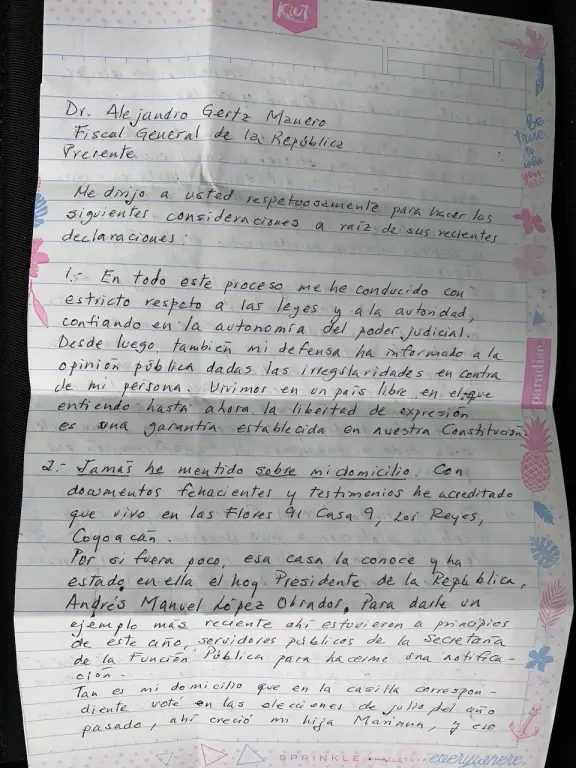 KIUT
Dr. Alejandro Gertz Manero
Fiscal General de la República
Presente
Me dirijo a usted respetuosamente para hacer las
siguientes consideraciones a raíz de sus recientes
declaraciones:
1.- En todo este proceso me he conducido con
estricto respeto a las leyes y a la autoridad,
confiando en la autonomía del poder judicial.
Desde luego, también mi defensa ha informado a la
opinión pública dadas las irregularidades en contra
de mi persona. Vivimos en un país libre en el que
entiendo hasta ahora la libertad de expresión
es una garantía establecida en nuestra Constitución.
2.- Jamás he mentido sobre mi domicilio. Con
documentos fehacientes y testimonios he acreditado
que vivo en las Flores 91 Casa 9, Los Reyes,
Coyoacán.
Por si fuera poco, esa casa la conoce y ha
estado en ella el hoy Presidente de la República,
Andrés Manuel López Obrador. Para darle un
ejemplo más reciente ahí estuvieron a principios
de este año, servidores públicos de la Secretaría
de la Función Pública para hacerme una notifica-
ción.
Tan es mi domicilio que en la casilla correspon-
diente voté en las elecciones de julio del año
pasado, ahí creció mi hija Mariana, y eso
Be
true
to
who
you
are
paradise
SPRINKLE
everywhere